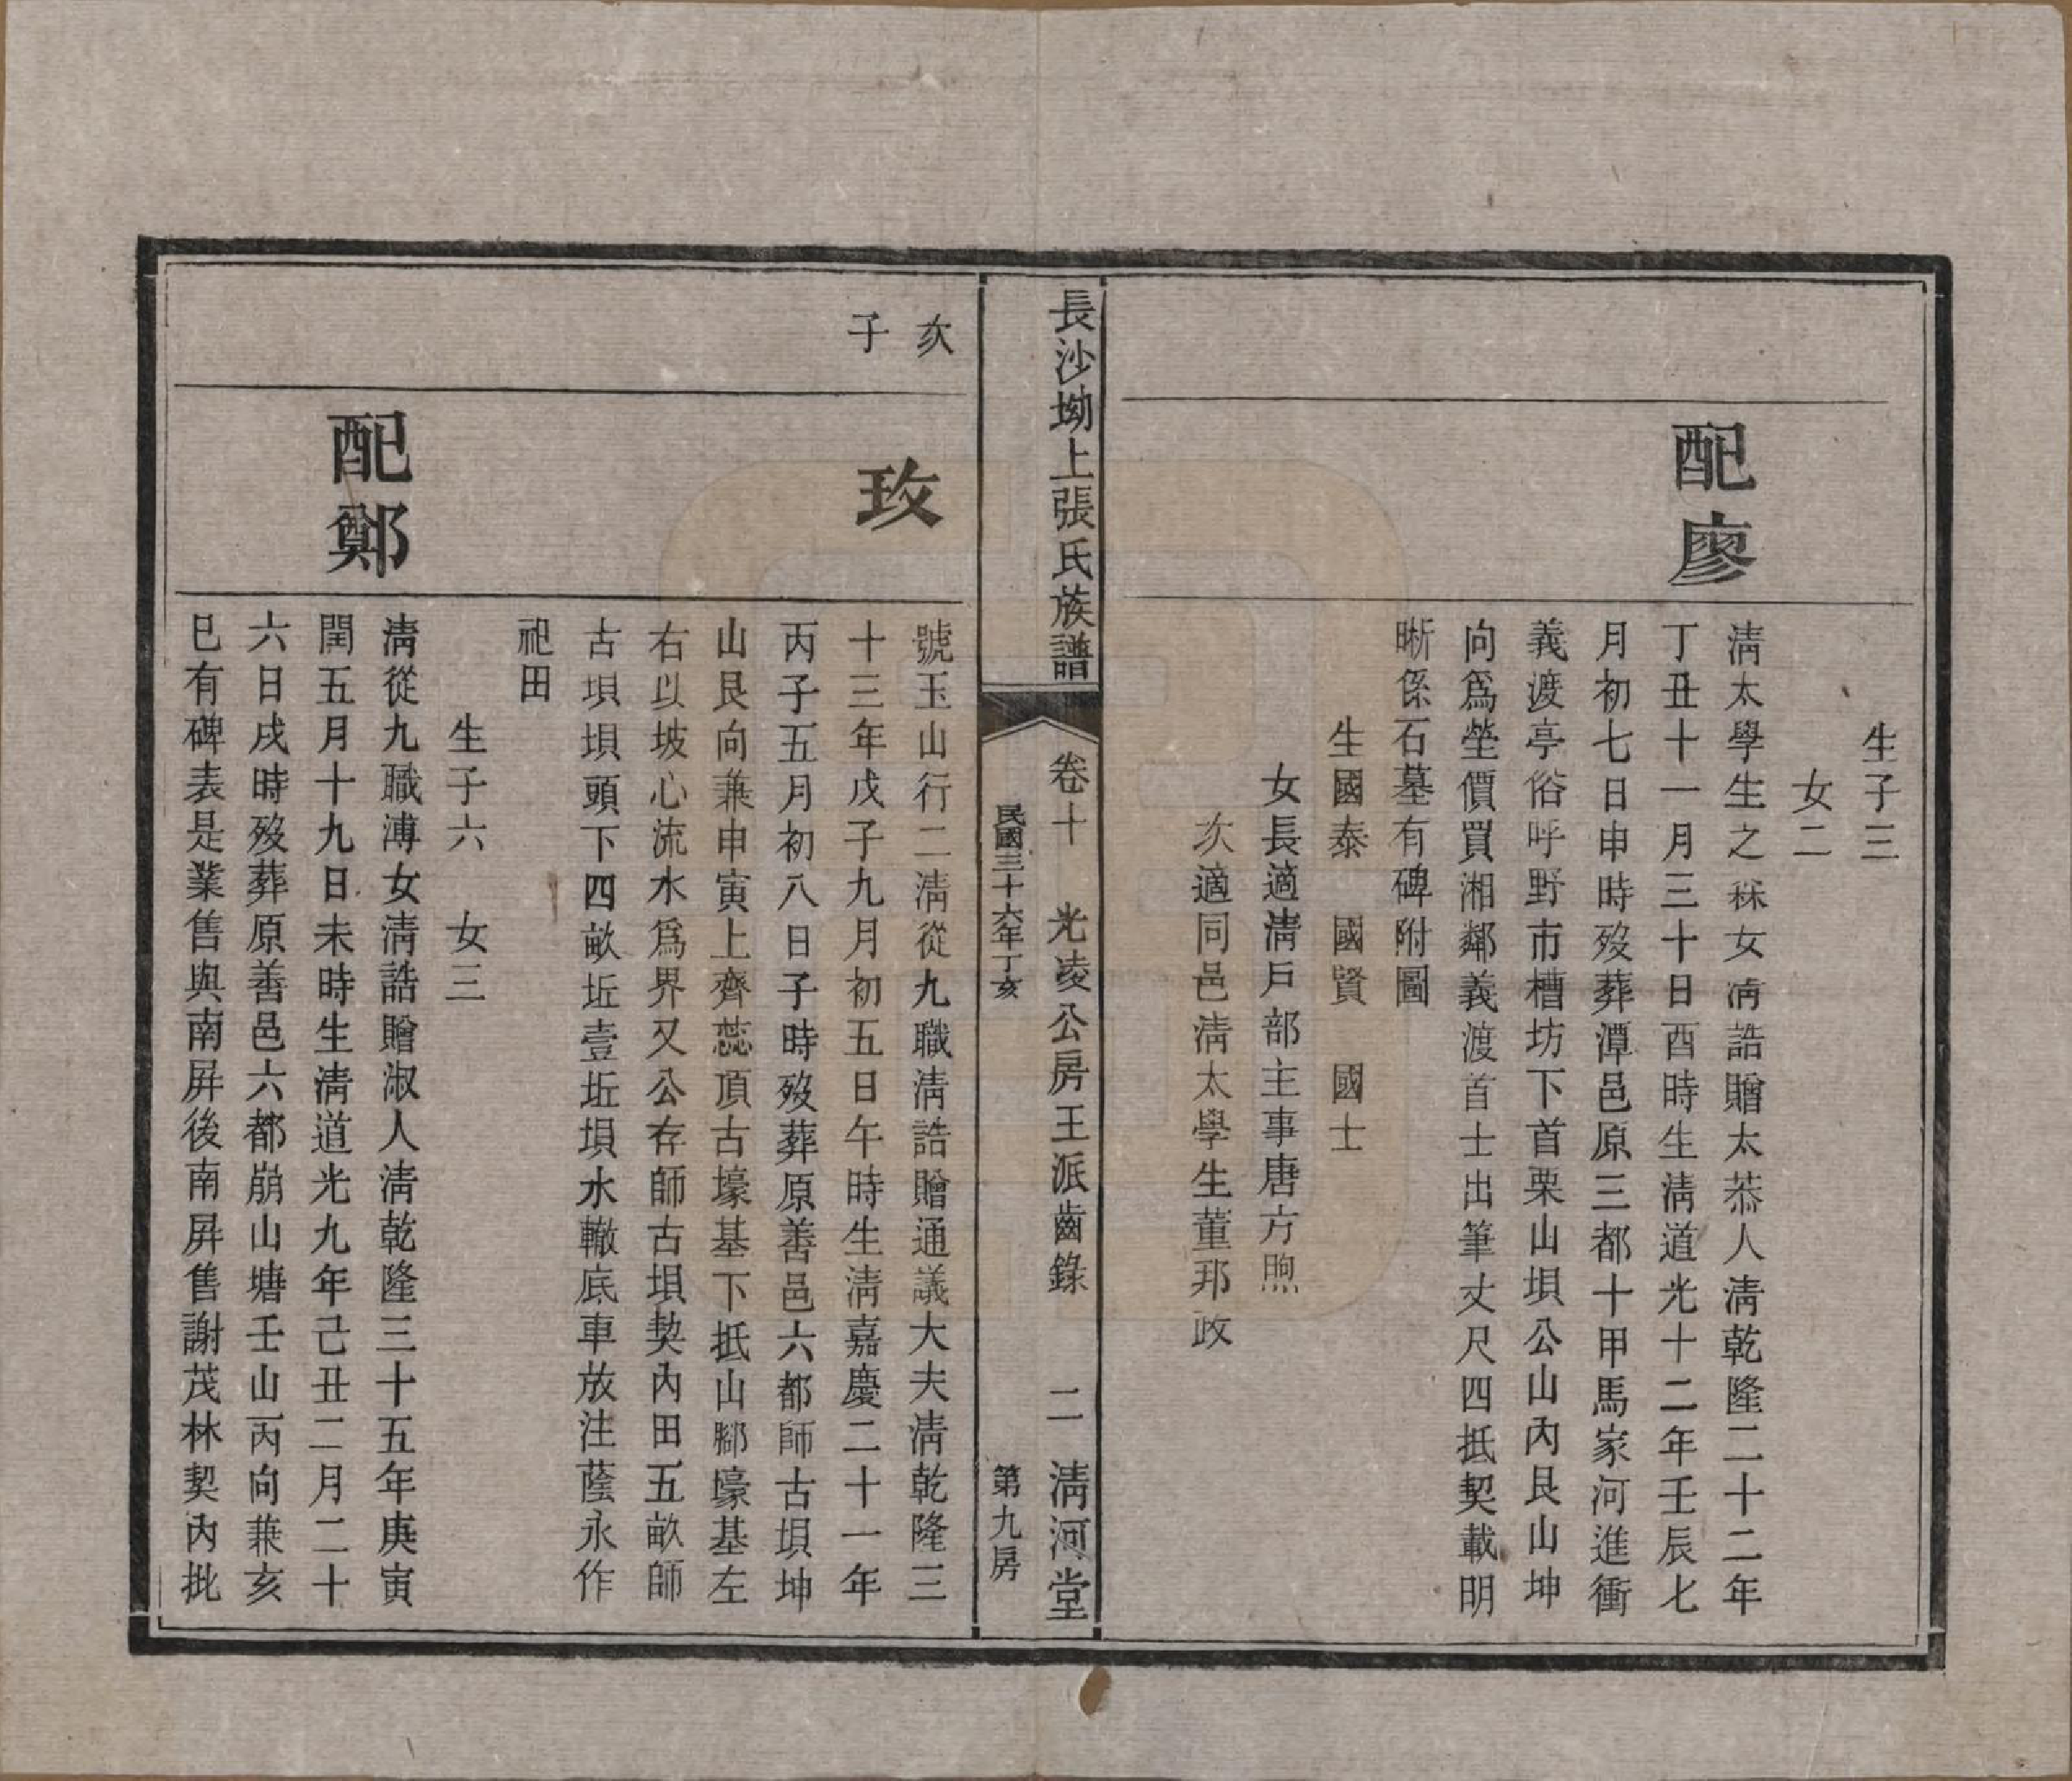 生子三
女二
配廖
淸太學生之槑女淸誥贈太恭人淸乾隆二十二年
丁丑十一月三十日酉時生淸道光十二年壬辰七
月初七日申時歿葬潭邑原三都十甲馬家河進衝
義渡亭俗呼野市槽坊下首栗山垻公山內艮山坤
向爲塋價買湘鄰義渡首士出筆丈尺四抵契載明
晰係石墓有碑附圖
生國泰 國賢 國士
女長適淸戶部主事唐方煦
次適同邑淸太學生董邦政
長沙坳上張氏族譜
卷十 光凌公房王派齒錄 二 淸河堂
民國三十六年丁亥 第九房
次
子
玫
號玉山行二淸從九職淸誥贈通議大夫淸乾隆三
十三年戊子九月初五日午時生淸嘉慶二十一年
丙子五月初八日子時歿葬原善邑六都師古垻坤
山艮向兼申寅上齊蕊頂古壕基下抵山腳壕基左
右以坡心流水爲界又公存師古垻契內田五畝師
古垻垻頭下四畝坵壹坵垻水轍底車放注蔭永作
祀田
生子六 女三
配鄭
淸從九職溥女淸誥贈淑人淸乾隆三十五年庚寅
閏五月十九日未時生淸道光九年己丑二月二十
六日戌時歿葬原善邑六都崩山塘壬山丙向兼亥
巳有碑表是業售與南屛後南屛售謝茂林契內批